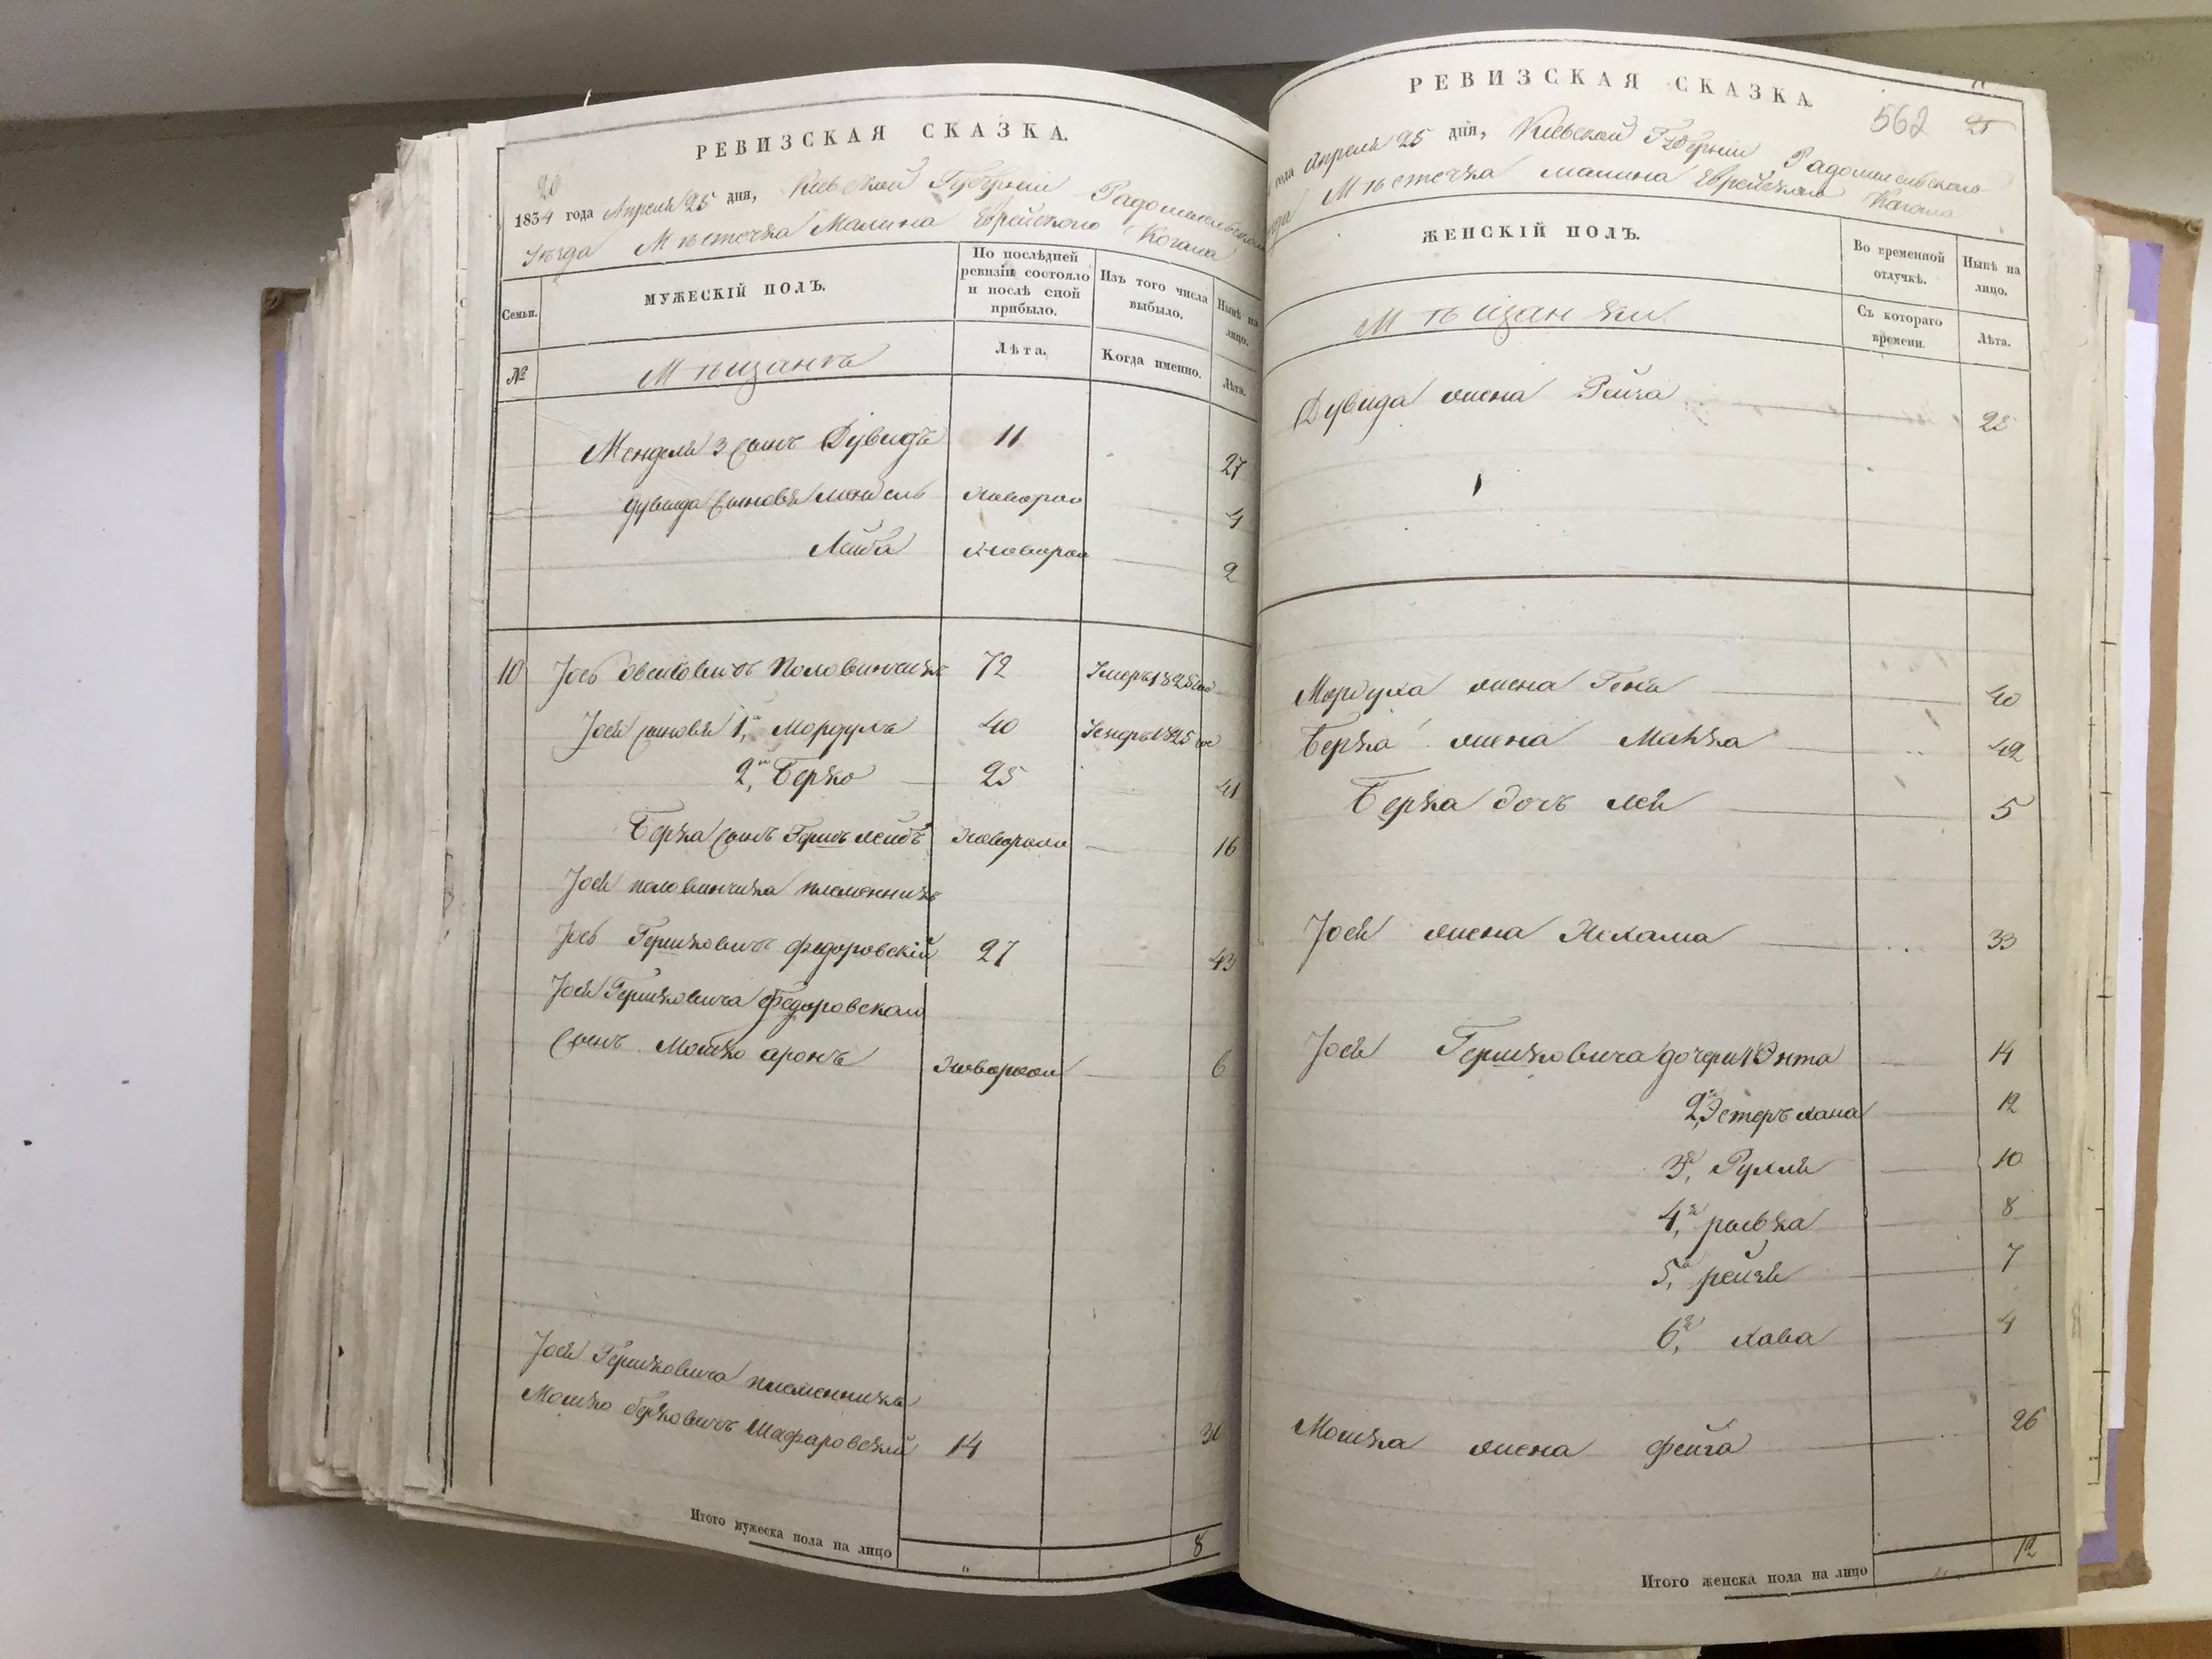 РЕВИЗСКАЯ СКАЗКА.
20
1834 года Апреля 25 дня, Киевской Губернии Радомысльского
Уѣзда Мѣстечка Малина Еврейского Кагала
Семьи.
МУЖЕСКІЙ ПОЛЪ.
По послѣдней ревизіи состояло и послѣ сной прибыло.
Изъ того числа выбыло.
Нынѣ на лицо.
№
Мѣщанъ
Лѣта.
Когда именно.
Лѣта.
Менделя 3 сынъ Дувидъ 11 27
Дувида сыновья Мендель новорож 4
Лейба новорож 2
10 Іось Половинчикъ 72 Умеръ 1825 год
Іося сыновья 1й, Мордухъ 40 Умеръ 1825 го
2й, Берко 25 41
Берка сынъ Гершъ Лейбъ новорож 16
Іося Половинчика племянникъ
Іось Гершковичъ Федоровскій 27 43
Іося Гершковича Федоровскаго
сынъ Мошко Аронъ новорож 6
Іося Гершковича племянникъ
Мошко Берковичъ Шафаровскій 14 31
Итого мужеска пола на лицо „ 8
РЕВИЗСКАЯ СКАЗКА.
562 25
года Апреля 25 дня, Киевской Губернии Радомысльского
Мѣстечка Малина Еврейского Кагала
ЖЕНСКІЙ ПОЛЪ.
Во временной отлучкѣ.
Нынѣ на лицо.
Мѣщанки.
Съ котораго времени.
Лѣта.
Дувида жена Рейза 25
Мордуха жена Геня 40
Берка жена Манка 42
Берка дочь Лея 5
Іося жена Нехама 33
Іося Гершковича дочери 1я Энта 14
2я, Эстеръ Хана 12
3я, Рухля 10
4я, ривка 8
5я, рейзя 7
6я, Хава 4
Мошка жена Фейга 26
Итого женска пола на лицо „ 12